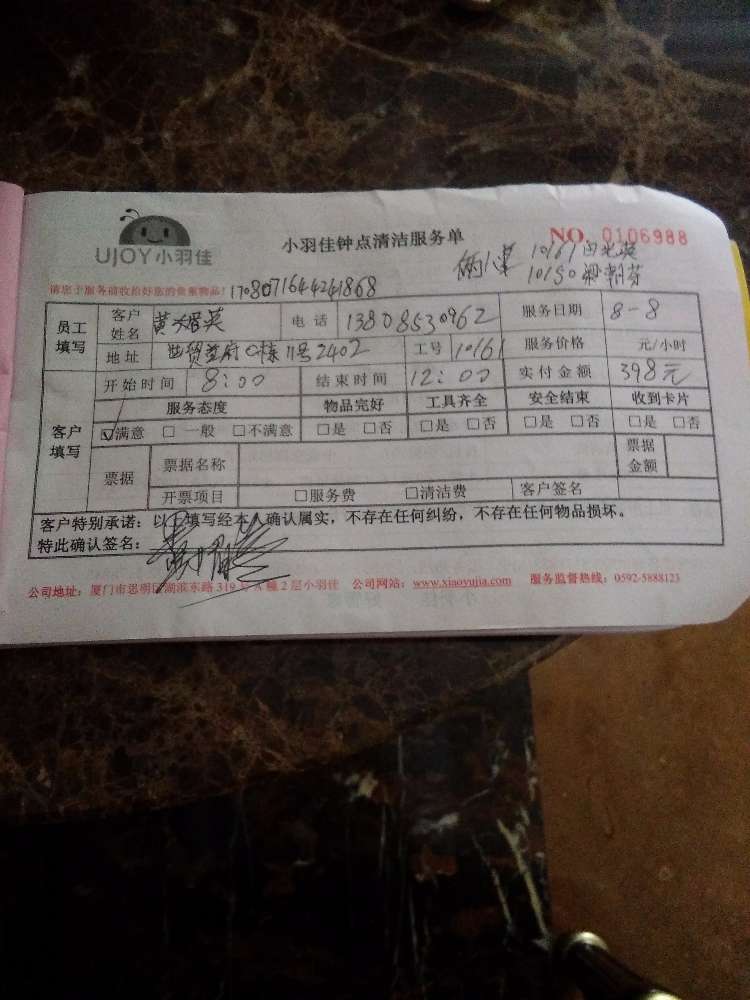 UJOY小羽佳
小羽佳钟点清洁服务单
NO. 0106988
10161
10150
请您于服务前收拾好您的贵重物品!
员工填写 客户姓名 黄 英 电话 13808530962 服务日期 8-8
地址 世贸 府C栋11号2402 工号 10161 服务价格 元/小时
开始时间 8:00 结束时间 12:00 实付金额 398元
客户填写 服务态度 物品完好 工具齐全 安全结束 收到卡片
☑满意 □一般 □不满意 □是 □否 □是 □否 □是 □否 □是 □否
票据 票据名称 票据金额
开票项目 □服务费 □清洁费 客户签名
客户特别承诺:以上填写经本人确认属实,不存在任何纠纷,不存在任何物品损坏。
特此确认签名:
公司地址:厦门市思明区湖滨东路319号A幢2层小羽佳 公司网站:www.xiaoyujia.com 服务监督热线:0592-5888123